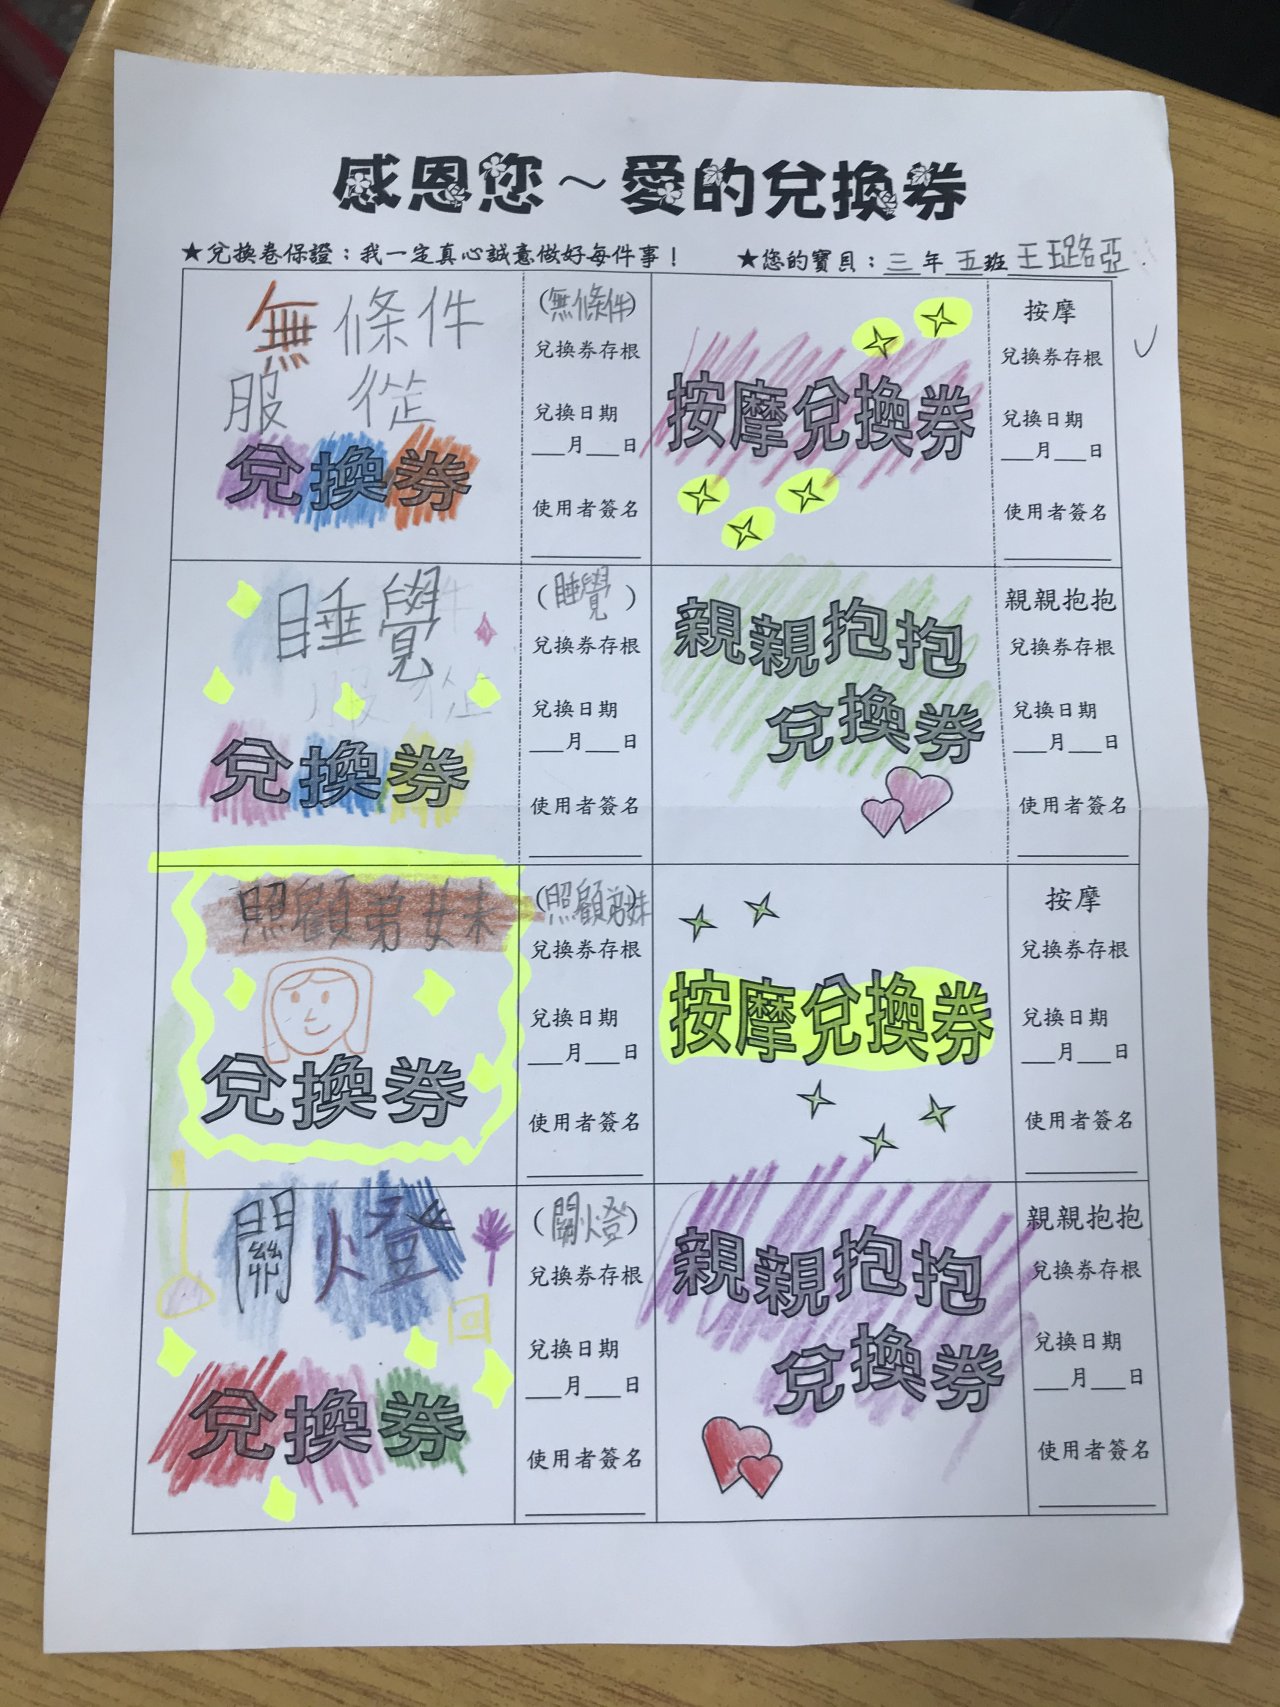 感恩您～愛的兌換券
★兌換卷保證：我一定真心誠意做好每件事！
★您的寶貝：三年五班王璐亞
無條件
服從
兌換券
(無條件)
兌換券存根
兌換日期
___月___日
使用者簽名
按摩兌換券
按摩
兌換券存根
兌換日期
___月___日
使用者簽名
睡覺
兌換券
(睡覺)
兌換券存根
兌換日期
___月___日
使用者簽名
親親抱抱
兌換券
親親抱抱
兌換券存根
兌換日期
___月___日
使用者簽名
照顧弟妹
兌換券
(照顧弟妹)
兌換券存根
兌換日期
___月___日
使用者簽名
按摩兌換券
按摩
兌換券存根
兌換日期
___月___日
使用者簽名
關燈
兌換券
(關燈)
兌換券存根
兌換日期
___月___日
使用者簽名
親親抱抱
兌換券
親親抱抱
兌換券存根
兌換日期
___月___日
使用者簽名